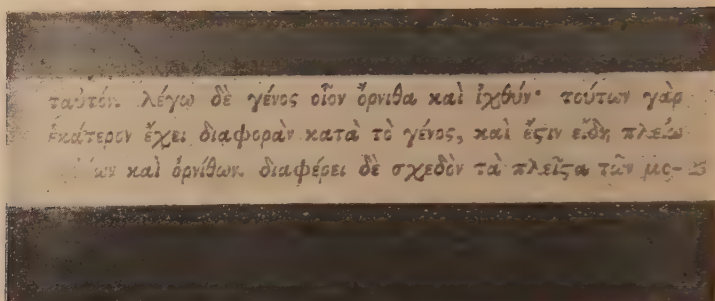 ταὐτόν. λέγω δὲ γένος οἷον ὄρνιθα καὶ ἰχθύν· τούτων γὰρ
ἑκάτερον ἔχει διαφορὰν κατὰ τὸ γένος, καὶ ἔϛιν εἴδη πλείω
ων καὶ ὀρνίθων. διαφέρει δὲ σχεδὸν τὰ πλεῖϛα τῶν μο- 25